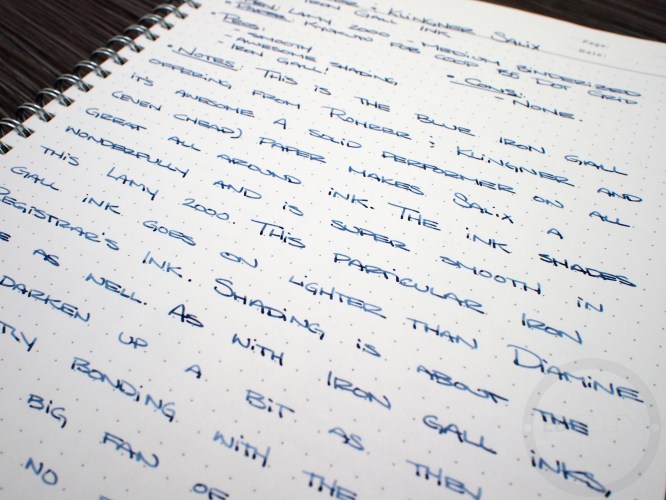 : KLINGNER SALIX
IRON GALL INK
• PEN: LAMY 2000 - MEDIUM, BINDERIZED
KYOKUTO FOR COOP B5 DOT GRID
• PROS:
- SMOOTH
- AWESOME SHADING
- IRON GALL!
• CONS:
- NONE.
Page:
Date:
• NOTES: THIS IS THE BLUE IRON GALL
OFFERING FROM ROHRER : KLINGNER AND
IT'S AWESOME A SOLID PERFORMER ON ALL
(EVEN CHEAP) PAPER MAKES SALIX A
GREAT ALL AROUND INK. THE INK SHADES
WONDERFULLY AND IS SUPER SMOOTH IN
THIS LAMY 2000. THIS PARTICULAR IRON
GALL INK GOES ON LIGHTER THAN DIAMINE
REGISTRAR'S INK. SHADING IS ABOUT THE
AS WELL. AS WITH IRON GALL INKS,
DARKEN UP A BIT AS THEY
BONDING WITH THE
BIG FAN OF
NO